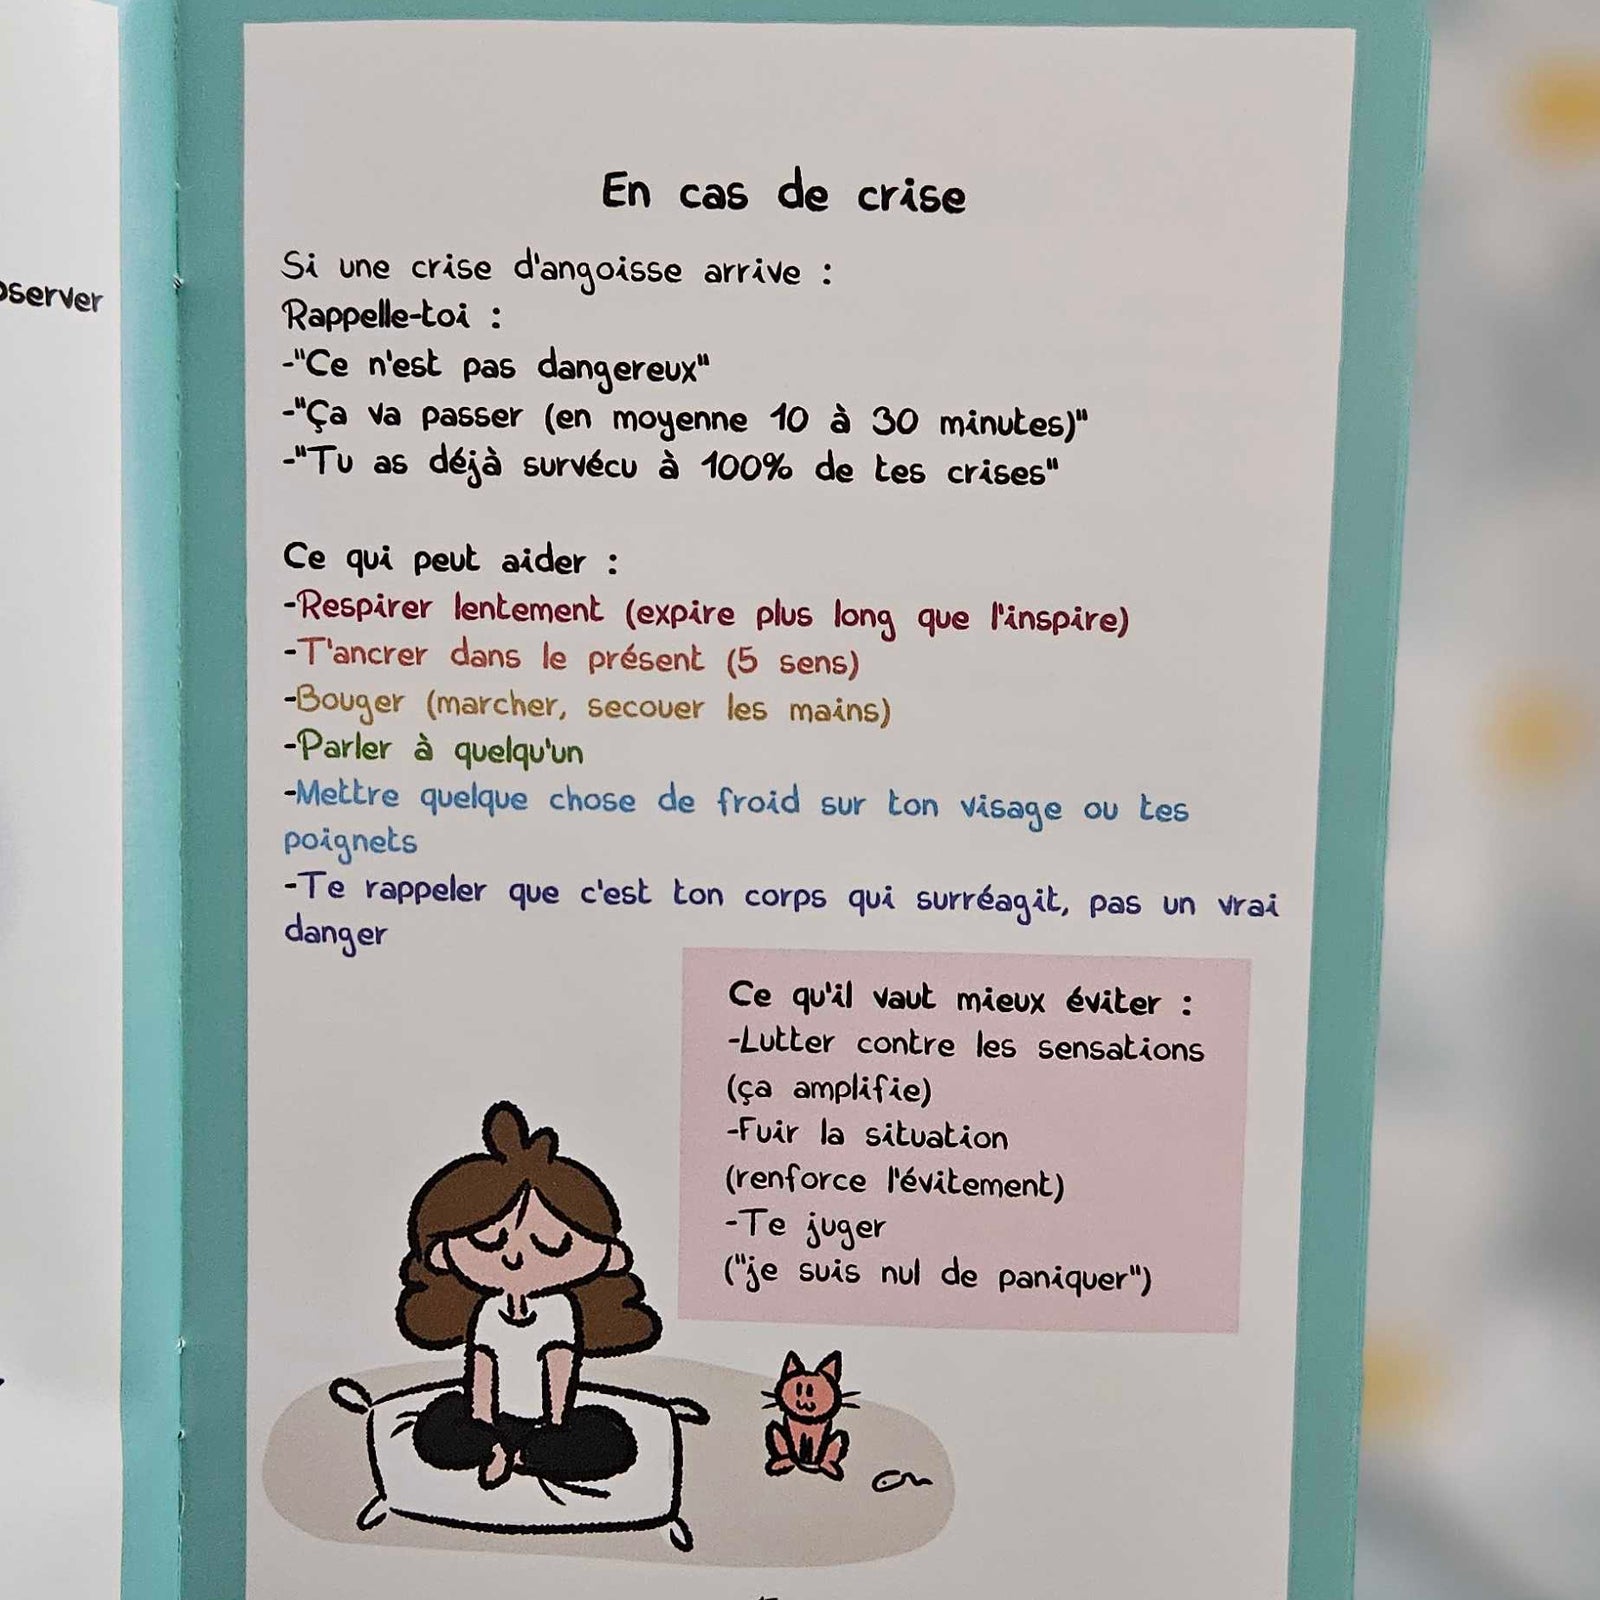 En cas de crise
Si une crise d'angoisse arrive :
Rappelle-toi :
-"Ce n'est pas dangereux"
-"Ça va passer (en moyenne 10 à 30 minutes)"
-"Tu as déjà survécu à 100% de tes crises"
Ce qui peut aider :
-Respirer lentement (expire plus long que l'inspire)
-T'ancrer dans le présent (5 sens)
-Bouger (marcher, secouer les mains)
-Parler à quelqu'un
-Mettre quelque chose de froid sur ton visage ou tes
poignets
-Te rappeler que c'est ton corps qui surréagit, pas un vrai
danger
Ce qu'il vaut mieux éviter :
-Lutter contre les sensations
(ça amplifie)
-Fuir la situation
(renforce l'évitement)
-Te juger
("je suis nul de paniquer")